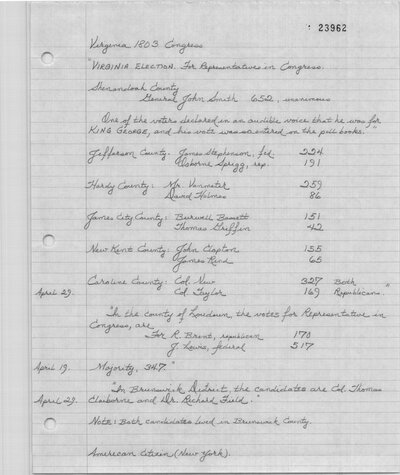 23962
Virginia 1803 Congress
"VIRGINIA ELECTION. For Representatives in Congress.
Shenandoah County
General John Smith 652, unanimous
One of the voters declared in an audible voice that he was for
KING GEORGE, and his vote was so entered on the poll books."
Jefferson County: James Stephenson, fed. 224
Osborne Sprigg, rep. 191
Hardy County: Mr. Vanmeter 259
David Holmes 86
James City County: Burwell Bassett 151
Thomas Griffin 42
New Kent County: John Clopton 155
James Rind 65
Caroline County: Col. New 327 Both
April 29. Col. Taylor 169 Republicans."
"In the county of Loudoun, the votes for Representative in
Congress, are
For R. Brent, republican 170
J. Lewis, federal 517
April 19. Majority, 347."
"In Brunswick District, the candidates are Col. Thomas
April 29. Claiborne and Dr. Richard Field."
Note: Both candidates lived in Brunswick County.
American Citizen (New York).